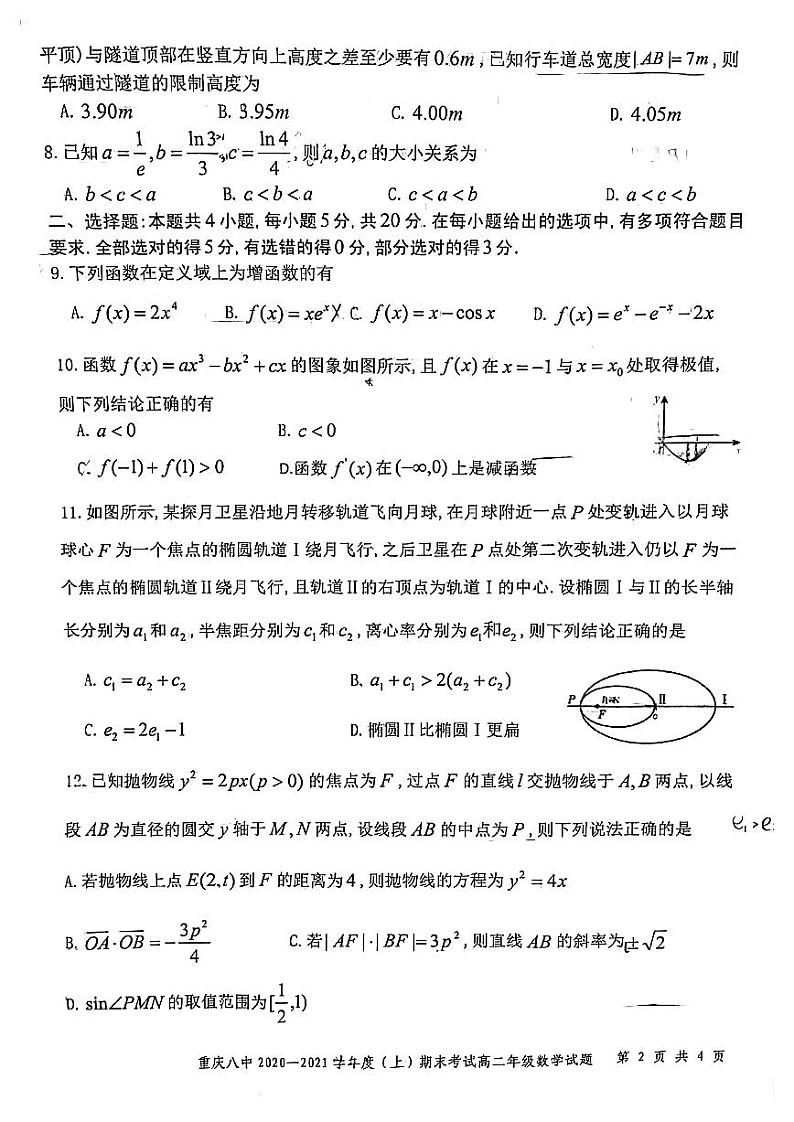 平顶)与隧道顶部在竖直方向上高度之差至少要有0.6m,已知行车道总宽度|AB|=7m,则
车辆通过隧道的限制高度为
A. 3.90m B. 3.95m C. 4.00m D. 4.05m
8.已知a=1/e,b=ln3/3,c=ln4/4,则a,b,c的大小关系为
A. b<c<a B. c<b<a C. c<a<b D. a<c<b
二、选择题:本题共4小题,每小题5分,共20分.在每小题给出的选项中,有多项符合题目
要求.全部选对的得5分,有选错的得0分,部分选对的得3分.
9.下列函数在定义域上为增函数的有
A. f(x)=2x⁴ B. f(x)=xeˣ C. f(x)=x−cosx D. f(x)=eˣ−e⁻ˣ−2x
10.函数f(x)=ax³−bx²+cx的图象如图所示,且f(x)在x=−1与x=x₀处取得极值,
则下列结论正确的有
A. a<0 B. c<0
C. f(−1)+f(1)>0 D.函数f'(x)在(−∞,0)上是减函数
y
11.如图所示,某探月卫星沿地月转移轨道飞向月球,在月球附近一点P处变轨进入以月球
球心F为一个焦点的椭圆轨道Ⅰ绕月飞行,之后卫星在P点处第二次变轨进入仍以F为一
个焦点的椭圆轨道Ⅱ绕月飞行,且轨道Ⅱ的右顶点为轨道Ⅰ的中心.设椭圆Ⅰ与Ⅱ的长半轴
长分别为a₁和a₂,半焦距分别为c₁和c₂,离心率分别为e₁和e₂,则下列结论正确的是
A. c₁=a₂+c₂ B. a₁+c₁>2(a₂+c₂)
C. e₂=2e₁−1 D.椭圆Ⅱ比椭圆Ⅰ更扁
P F Ⅱ Ⅰ
12.已知抛物线y²=2px(p>0)的焦点为F,过点F的直线l交抛物线于A,B两点,以线
段AB为直径的圆交y轴于M,N两点,设线段AB的中点为P,则下列说法正确的是
e₁>e
A.若抛物线上点E(2,t)到F的距离为4,则抛物线的方程为y²=4x
B. OA·OB=−3p²/4 C.若|AF|·|BF|=3p²,则直线AB的斜率为±√2
D. sin∠PMN的取值范围为[1/2,1)
重庆八中2020—2021学年度(上)期末考试高二年级数学试题 第 2 页 共 4 页